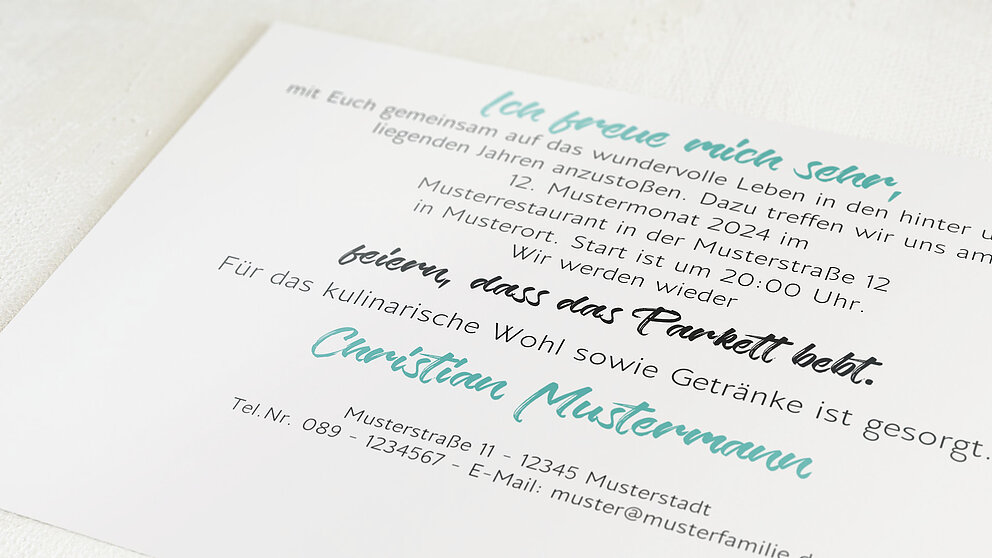 Ich freue mich sehr,
mit Euch gemeinsam auf das wundervolle Leben in den hinter u
liegenden Jahren anzustoßen. Dazu treffen wir uns am
12. Mustermonat 2024 im
Musterrestaurant in der Musterstraße 12
in Musterort. Start ist um 20:00 Uhr.
Wir werden wieder
feiern, dass das Parkett bebt.
Für das kulinarische Wohl sowie Getränke ist gesorgt.
Christian Mustermann
Musterstraße 11 - 12345 Musterstadt
Tel.Nr. 089 - 1234567 - E-Mail: muster@musterfamilie.d